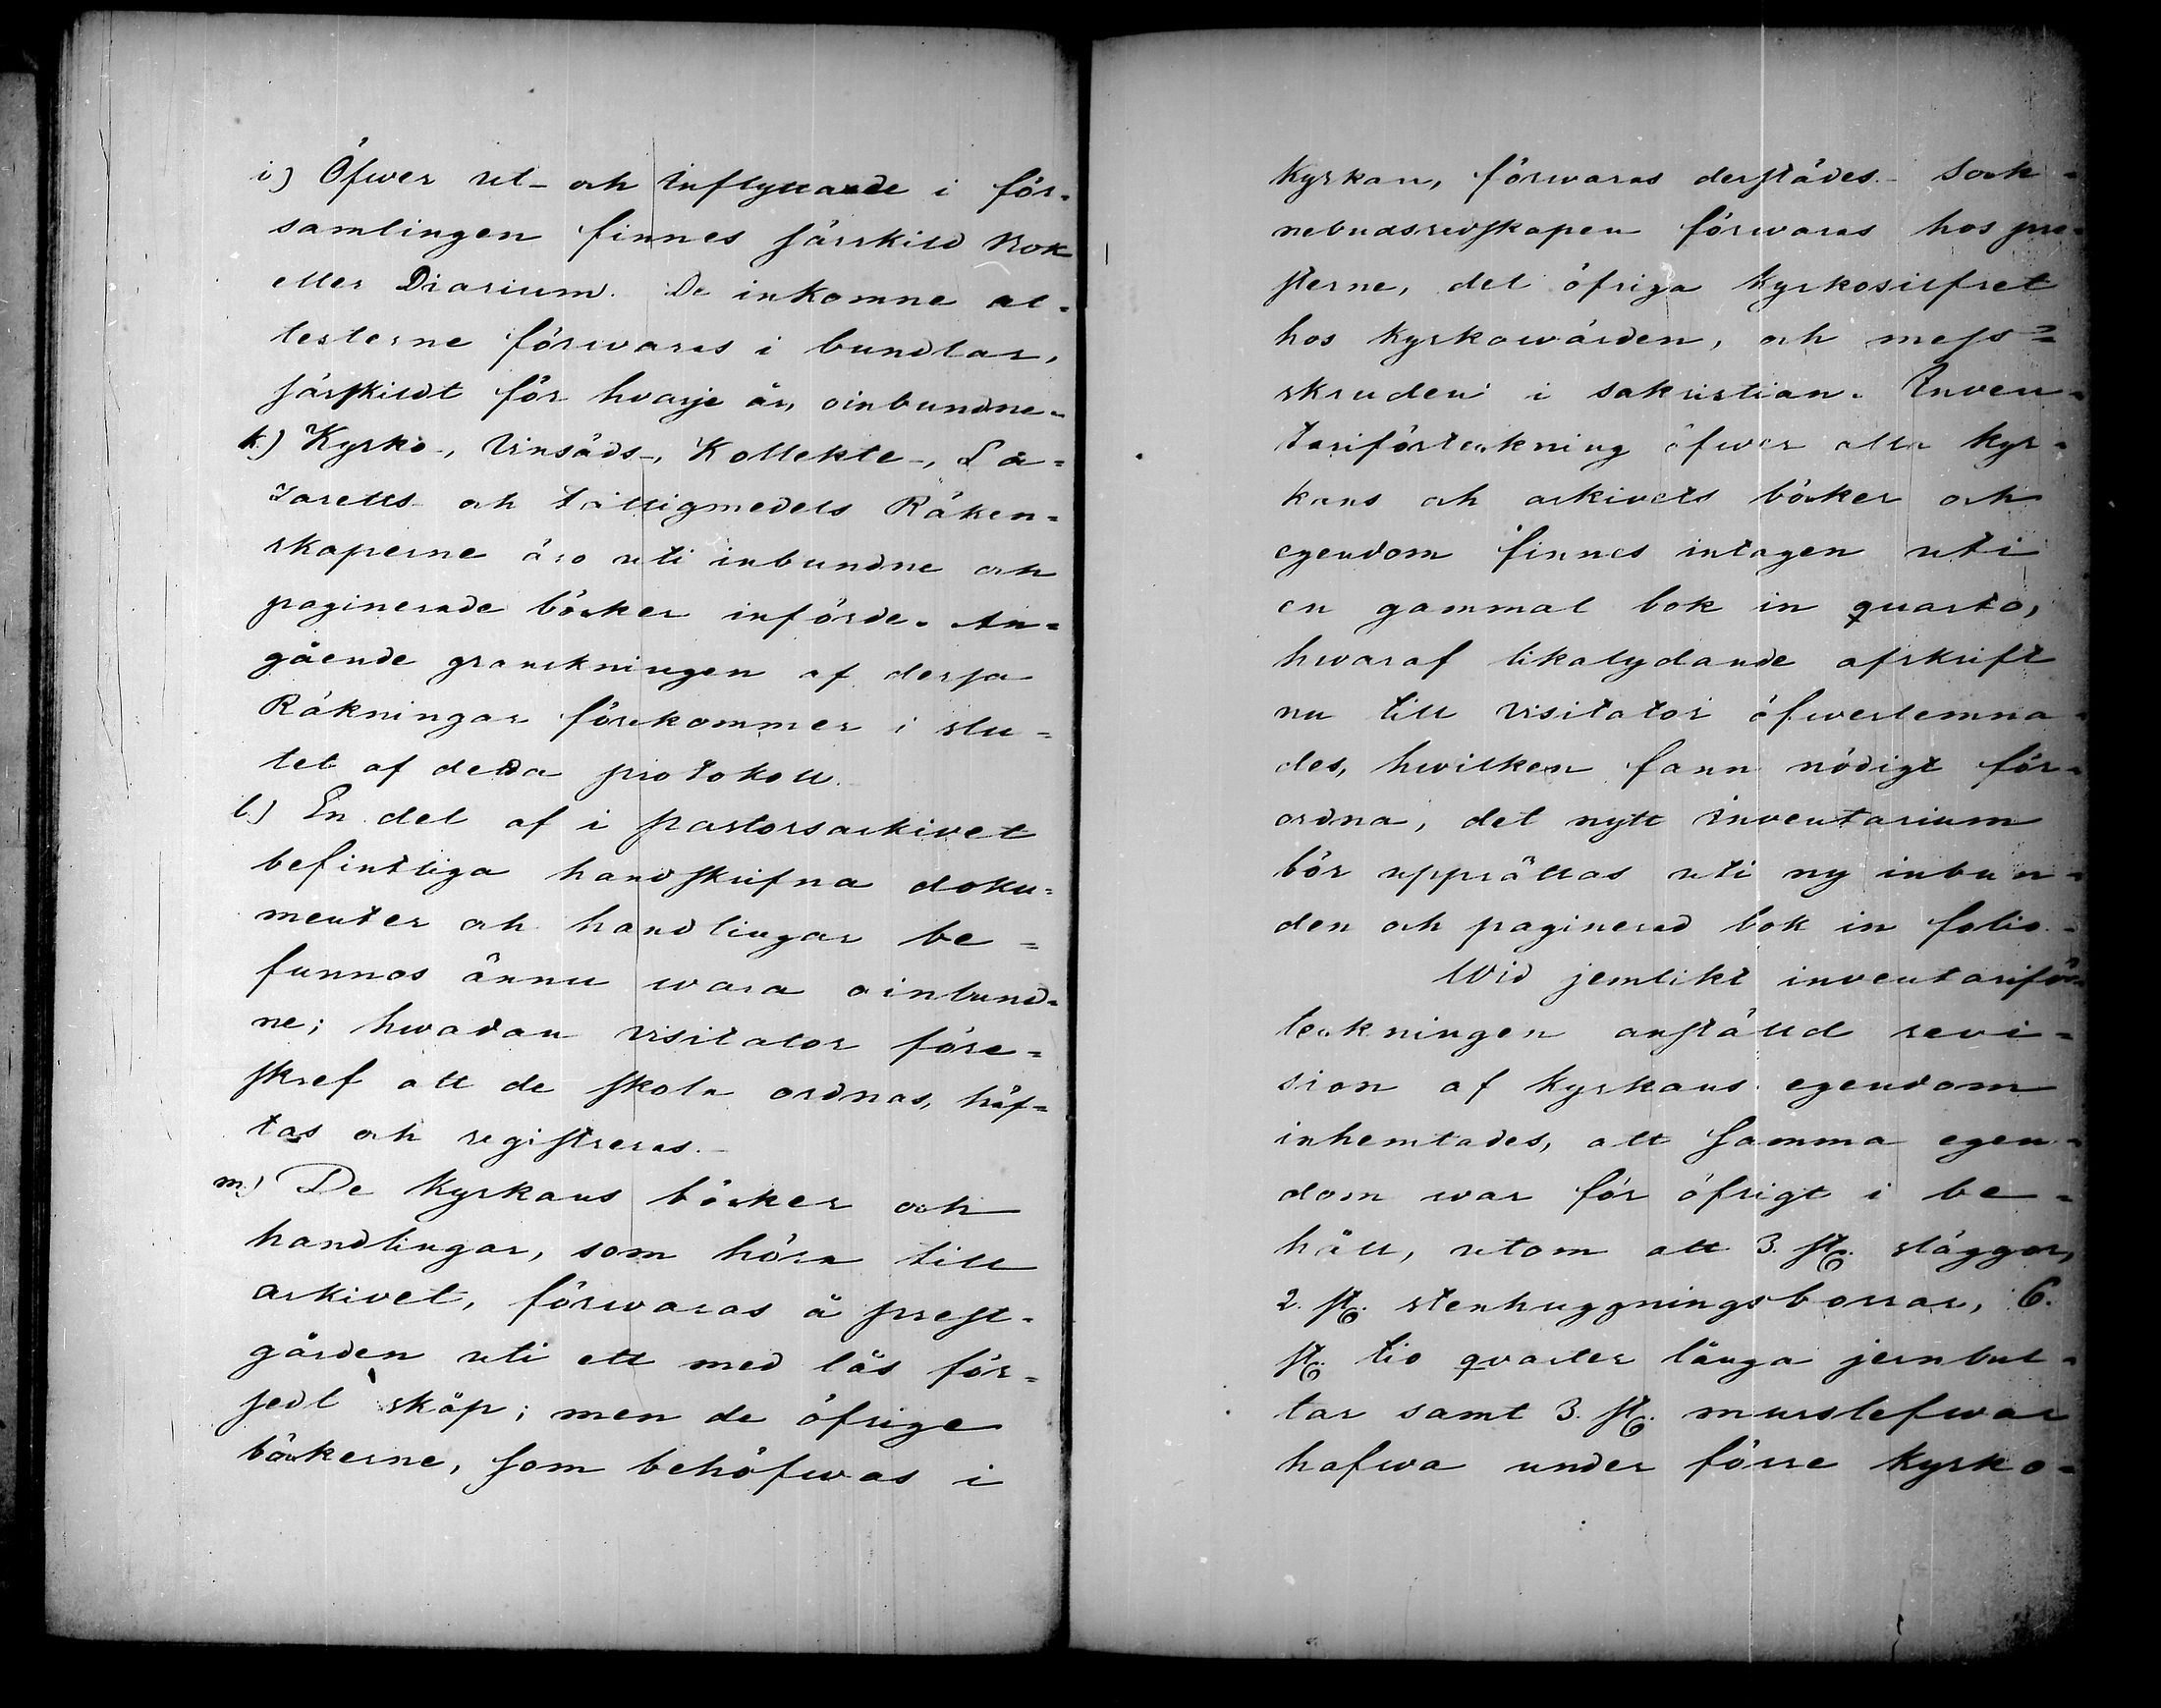 i.) Öfwer ut- och inflyttande i för=
samlingen finnes särskild Bok
eller Diarium. De inkomne at=
testerne förwaras i bundtar,
särskildt för hvarje år, oinbundne.
k.) Kyrko-, Utsäds-, Kollekte-, La=
zaretts- och Fattigmedels Räken=
skaperne äro uti inbundne och
paginerade böcker införde. An=
gående granskningen af dessa
Räkningar förekommer i slu=
tet af detta protokoll.
l.) En del af i pastorsarkivet
befintliga handskrifna doku=
menter och handlingar be=
funnos ännu wara oinbund=
ne; hwadan visitator före=
skref att de skola ordnas, häf=
tas och registreras.-
m.) De Kyrkans böcker och
handlingar, som höra till
arkivet, förwaras å prest=
gården uti ett med lås för=
sedt skåp; men de öfrige
böckerne, som behöfwas i
Kyrkan, förwaras derstädes.- Sock=
nebudsredskapen förwaras hos pre=
sterne, det öfriga Kyrkosilfret
hos Kyrkowärden, och mess=
skruden i sakristian. Inven=
tariiförteckning öfwer alla Kyr=
kans och arkivets böcker och
egendom finnes intagen uti
en gammal bok in quarto,
hwaraf likalydande afskrift
nu till visitator öfwerlemna=
des, hwilken fann nödigt för=
ordna, det nytt inventarium
bör upprättas uti ny inbun=
den och paginerad bok in folio.-
Wid jemlikt inventariiför=
teckningen anställd revi=
sion af Kyrkans egendom
inhemtades, att samma egen=
dom war för öfrigt i be=
håll, utom att 3. st. släggor,
2. st. stenhuggningsborrar, 6.
st. tio qvarter långa jernbul=
tar samt 3. st. murslefwar
hafwa under förre Kyrko=